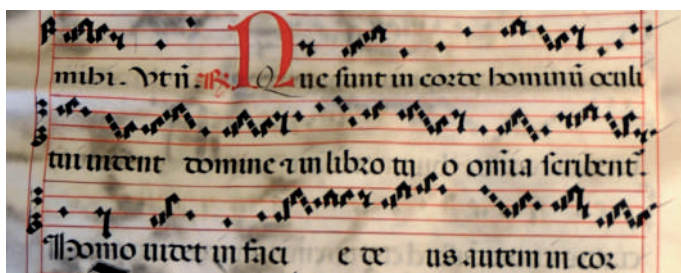 mihi. Vt ñ. R. Que sunt in corde hominũ oculi
tui uident domine ⁊ in libro tu o omĩa scribent᷑.
Homo uidet in faci e de us autem in cor